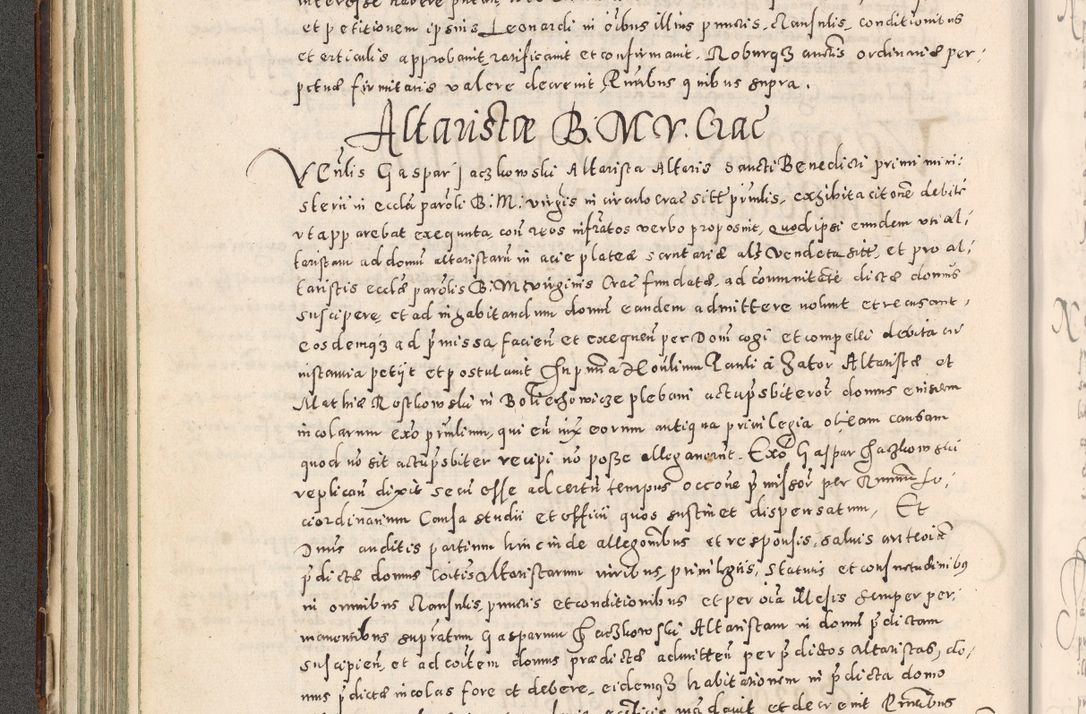 et petitionem ipsius Leonardi in oibus illius punctis, clausulis, conditionibus
et articulis approbavit ratificavit et confirmavit. Roburq3 auctis ordinariæ per,
petuæ firmitatis valere decrevit, Pntibus quibus supra.
Altaristæ B. M. V. Crac
VEnlis Gaspar Jaczkowski Altarista Altaris Sancti Benedicti primi mini:
sterii in eccla paroli B: M: virgis in circulo Crac sitt pntilis, exhibita citone debite
vt apparebat exequuta, con itos infratos verbo proposuit, quod ipsi eundem vti al,
taristam ad domu altaristaru in acie plateæ scrutariæ als Vendeta sitt, et pro al,
taristis ecclæ parolis B: M: virginis Crac fundatæ, ad communitate dictæ domus
suscipere, et ad inhabitandum domu eandem admittere nolunt et recusant,
eosdemq3 ad pmissa facien et exequen per Dom cogi et compelli debita cu
instantia petijt et postulavit In pntia Honlium Pauli à Zator Altaristæ et
Mathiæ Rostkowski in plebani actu psbiteror domus eiusdem
incolarum exo pntium, qui eu iux eorum antiqua privilegia ob eam causam
quod no sit actu psbiter recipi no posse allegaverunt. Exo Gaspar Jaczkowski
replican dixit secu esse ad certu tempus occone pmissor per Lo,
ci ordinarium Causa studii et officii quos sustinet dispensatum, Et
Dnus auditis partium hincinde allegonibus et responsis, salvis
pdictæ domus Altaristarum iuribus, privilegiis, statutis et consuetudinibq
in omnibus clausulis, punctis et conditionibus et per oia illesis semper per,
manentibus supratum Gasparum Jaczkowski Altaristam in domu pdictam
suscipien, et ad coitem domus prædictæ admitten per pdictos altaristas, do,
mus pdictæ incolas fore et debere, eidemq3 habitationem in pdicta domo
mandavit et decrevit Pntibus